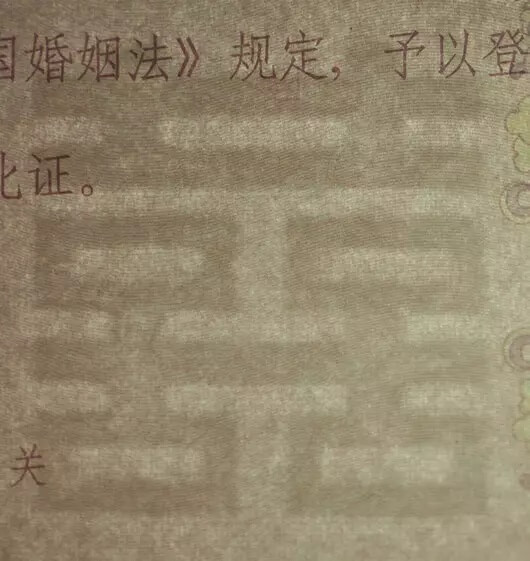 国婚姻法》规定，予以登
此证。
囍
关